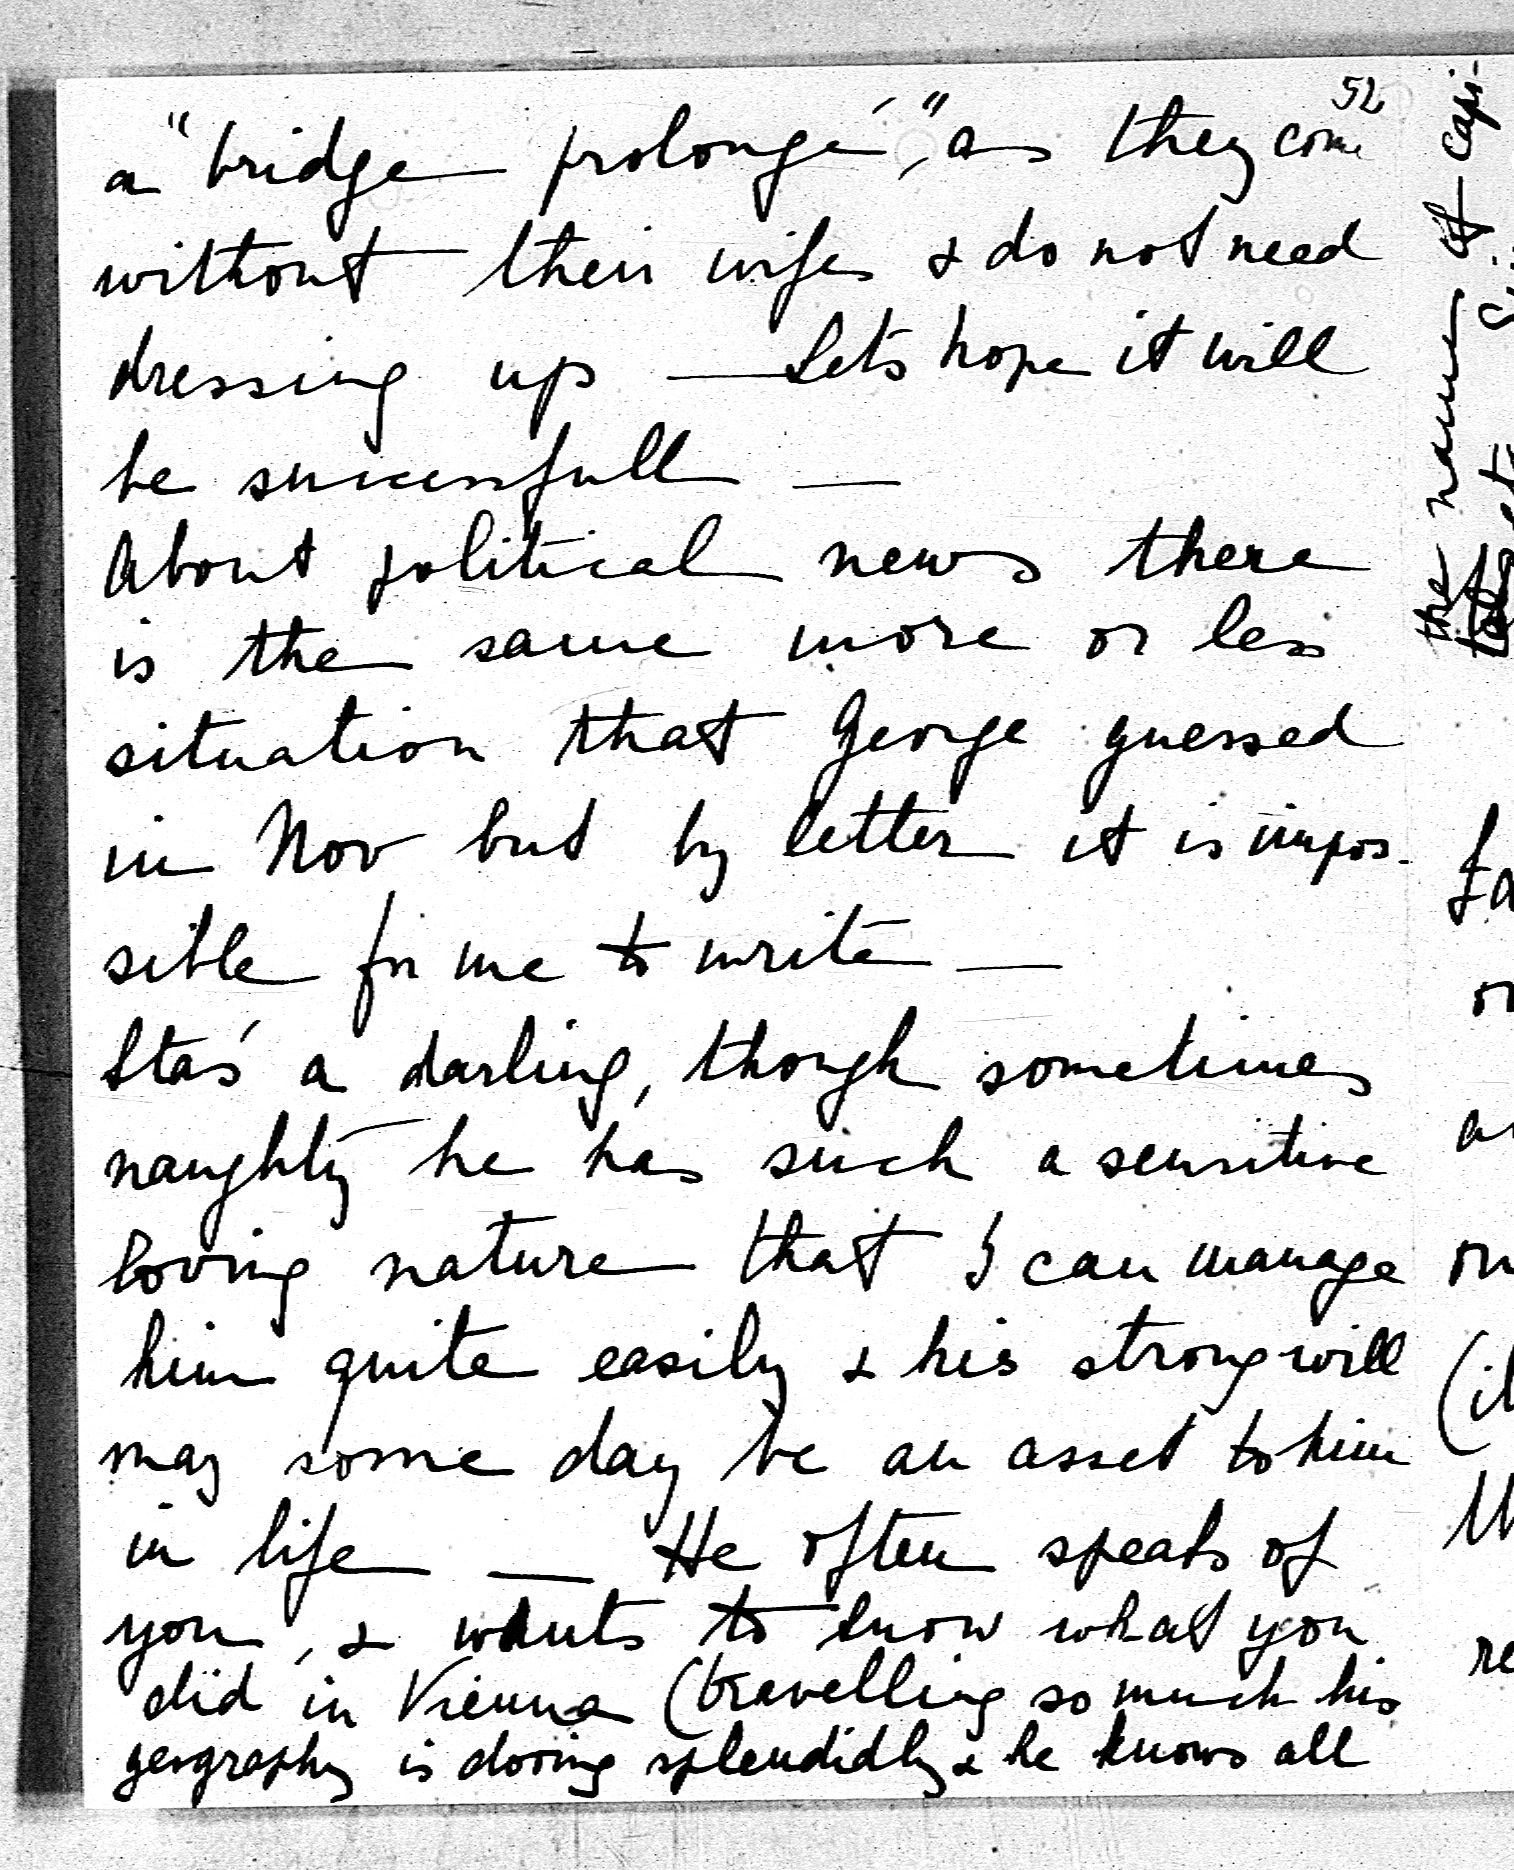 52
a "bridge prolongé", as they come
without their wifes & do not need
dressing up — Lets hope it will
be successfull —
About political news there
is the same more or less
situation that George guessed
in Nov but by letter it is impos-
sible for me to write —
Stas' a darling, though sometimes
naughty he has such a sensitive
loving nature that I can manage
him quite easily & his strong will
may some day be an asset to him
in life — He often speaks of
you, & wants to know what you
did in Vienna (travelling so much his
geography is doing splendidly & he knows all
the names of capi-